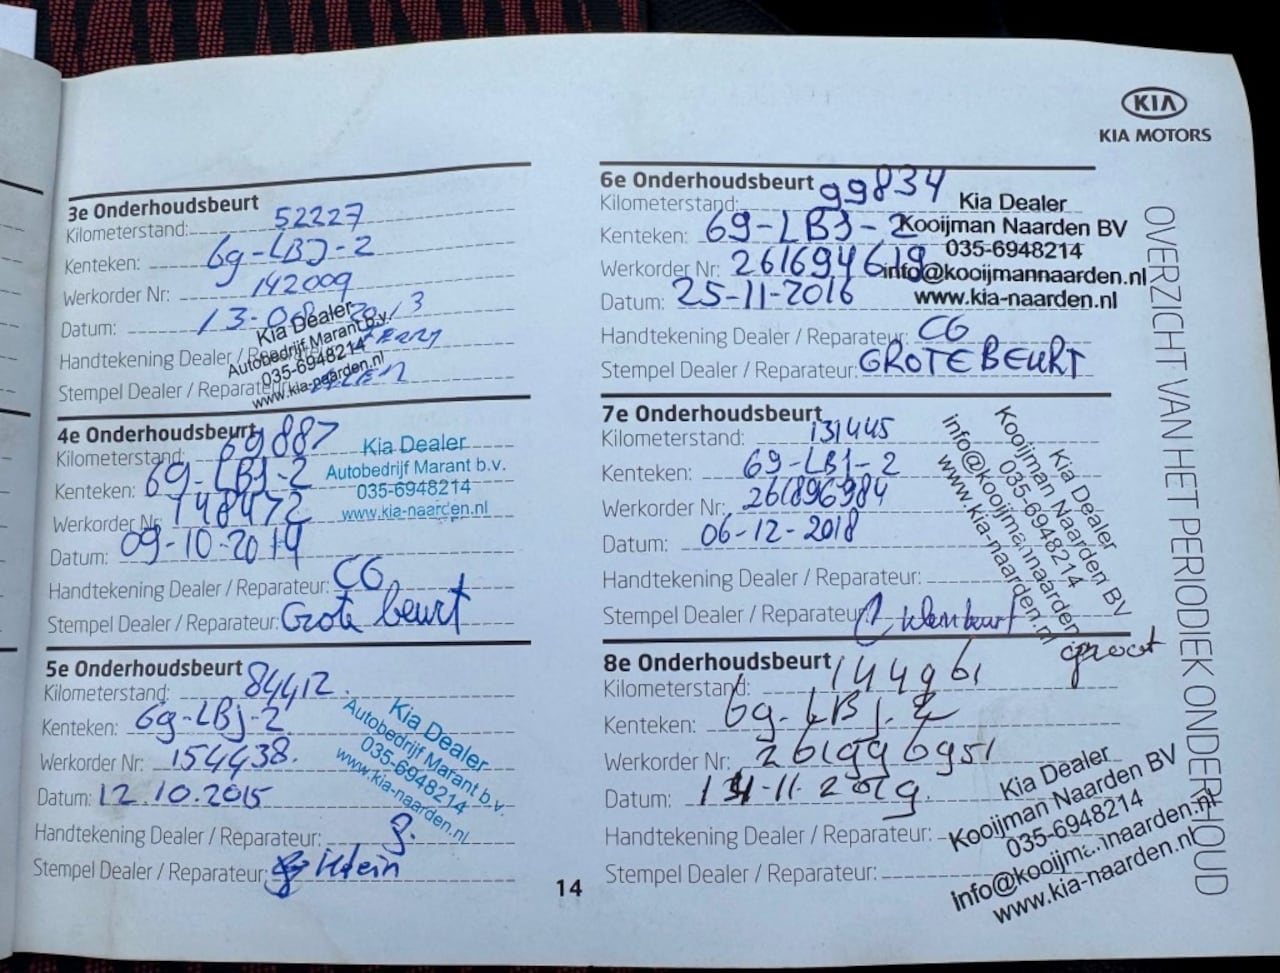 KIA
KIA MOTORS
OVERZICHT VAN HET PERIODIEK ONDERHOUD
3e Onderhoudsbeurt
Kilometerstand: 52227
Kenteken: 69-LBJ-2
Werkorder Nr: 142009
Datum: 13-08-2013
Handtekening Dealer / Reparateur:
Stempel Dealer / Reparateur: KLEIN
Kia Dealer
Autobedrijf Marant b.v.
035-6948214
www.kia-naarden.nl
4e Onderhoudsbeurt
Kilometerstand: 69887
Kenteken: 69-LBJ-2
Werkorder Nr: 148472
Datum: 09-10-2014
Handtekening Dealer / Reparateur: CG
Stempel Dealer / Reparateur: Grote beurt
Kia Dealer
Autobedrijf Marant b.v.
035-6948214
www.kia-naarden.nl
5e Onderhoudsbeurt
Kilometerstand: 84412
Kenteken: 69-LBJ-2
Werkorder Nr: 154438.
Datum: 12.10.2015
Handtekening Dealer / Reparateur:
Stempel Dealer / Reparateur: Klein
Kia Dealer
Autobedrijf Marant b.v.
035-6948214
www.kia-naarden.nl
6e Onderhoudsbeurt
Kilometerstand: 99834
Kenteken: 69-LBJ-2
Werkorder Nr: 261694619
Datum: 25-11-2016
Handtekening Dealer / Reparateur: CG
Stempel Dealer / Reparateur: GROTE BEURT
Kia Dealer
Kooijman Naarden BV
035-6948214
info@kooijmannaarden.nl
www.kia-naarden.nl
7e Onderhoudsbeurt
Kilometerstand: 131445
Kenteken: 69-LBJ-2
Werkorder Nr: 261896984
Datum: 06-12-2018
Handtekening Dealer / Reparateur:
Stempel Dealer / Reparateur:
Kia Dealer
Kooijman Naarden BV
035-6948214
info@kooijmannaarden.nl
www.kia-naarden.nl
8e Onderhoudsbeurt
groot
Kilometerstand: 144961
Kenteken: 69-LBJ-2
Werkorder Nr: 261996951
Datum: 14-11-2019.
Handtekening Dealer / Reparateur:
Stempel Dealer / Reparateur:
Kia Dealer
Kooijman Naarden BV
035-6948214
info@kooijmannaarden.nl
www.kia-naarden.nl
14